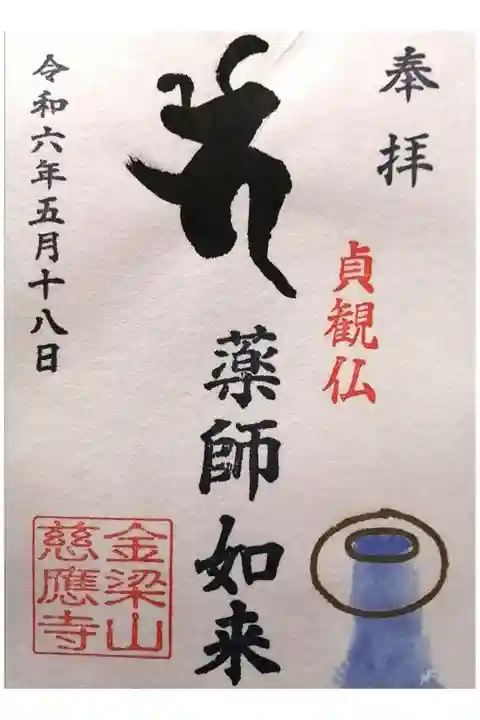 奉拝
貞観仏
薬師如来
令和六年五月十八日
金梁山
慈應寺